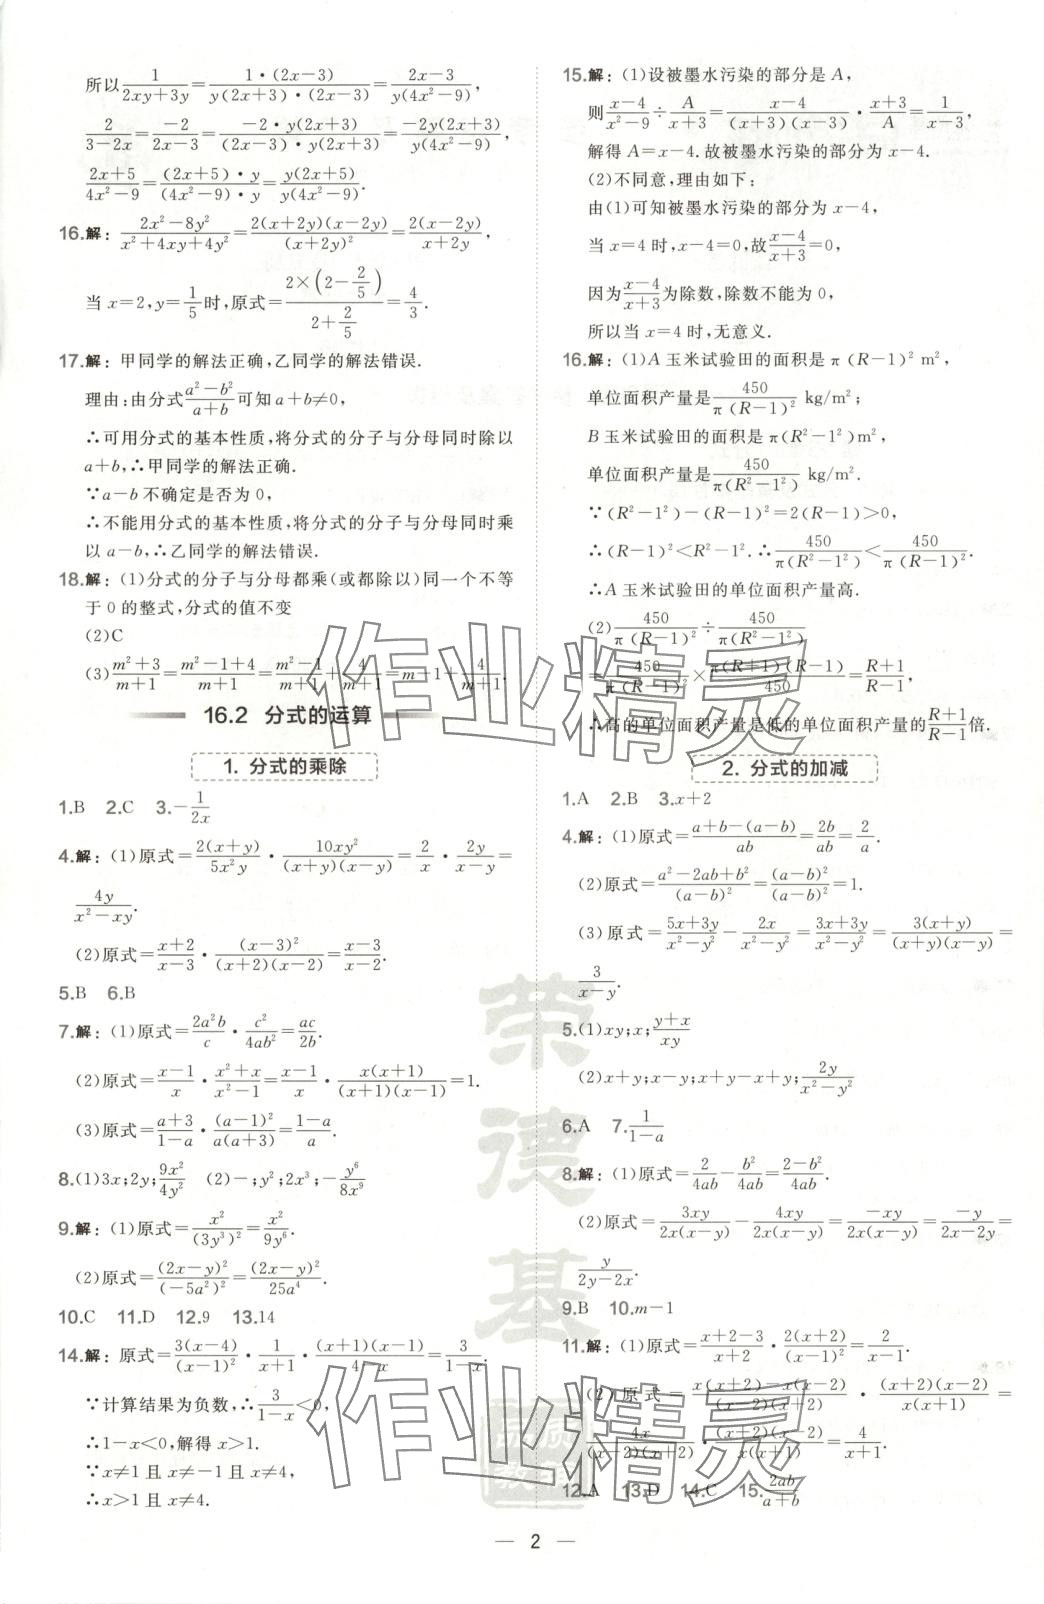 所以1/(2xy+3y)=1·(2x-3)/[y(2x+3)·(2x-3)]=(2x-3)/[y(4x²-9)],
2/(3-2x)=-2/(2x-3)=-2·y(2x+3)/[(2x-3)·y(2x+3)]=-2y(2x+3)/[y(4x²-9)],
(2x+5)/(4x²-9)=(2x+5)·y/[(4x²-9)·y]=y(2x+5)/[y(4x²-9)].
16.解：(2x²-8y²)/(x²+4xy+4y²)=2(x+2y)(x-2y)/(x+2y)²=2(x-2y)/(x+2y),
当x=2,y=1/5时,原式=2×(2-2/5)/(2+2/5)=4/3.
17.解：甲同学的解法正确,乙同学的解法错误.
理由:由分式(a²-b²)/(a+b)可知a+b≠0,
∴可用分式的基本性质,将分式的分子与分母同时除以
a+b,∴甲同学的解法正确.
∵a-b不确定是否为0,
∴不能用分式的基本性质,将分式的分子与分母同时乘
以a-b,∴乙同学的解法错误.
18.解：(1)分式的分子与分母都乘(或都除以)同一个不等
于0的整式,分式的值不变
(2)C
(3)(m²+3)/(m+1)=(m²-1+4)/(m+1)=(m²-1)/(m+1)+4/(m+1)=m-1+4/(m+1).
16.2 分式的运算
1. 分式的乘除
1.B 2.C 3.-1/(2x)
4.解：(1)原式=2(x+y)/(5x²y)·10xy²/[(x+y)(x-y)]=2/x·2y/(x-y)=
4y/(x²-xy).
(2)原式=(x+2)/(x-3)·(x-3)²/[(x+2)(x-2)]=(x-3)/(x-2).
5.B 6.B
7.解：(1)原式=2a²b/c·c²/(4ab²)=ac/(2b).
(2)原式=(x-1)/x·(x²+x)/(x²-1)=(x-1)/x·x(x+1)/[(x+1)(x-1)]=1.
(3)原式=(a+3)/(1-a)·(a-1)²/[a(a+3)]=(1-a)/a.
8.(1)3x;2y;9x²/(4y²) (2)-;y²;2x³;-y⁶/(8x⁹)
9.解：(1)原式=x²/(3y³)²=x²/(9y⁶).
(2)原式=(2x-y)²/(-5a²)²=(2x-y)²/(25a⁴).
10.C 11.D 12.9 13.14
14.解：原式=3(x-4)/(x-1)²·1/(x+1)·(x+1)(x-1)/(4-x)=3/(1-x).
∵计算结果为负数,∴3/(1-x)<0,
∴1-x<0,解得x>1.
∵x≠1且x≠-1且x≠4,
∴x>1且x≠4.
15.解：(1)设被墨水污染的部分是A,
则(x-4)/(x²-9)÷A/(x+3)=(x-4)/[(x+3)(x-3)]·(x+3)/A=1/(x-3),
解得A=x-4.故被墨水污染的部分为x-4.
(2)不同意,理由如下:
由(1)可知被墨水污染的部分为x-4,
当x=4时,x-4=0,故(x-4)/(x+3)=0,
因为(x-4)/(x+3)为除数,除数不能为0,
所以当x=4时,无意义.
16.解：(1)A玉米试验田的面积是π(R-1)² m²,
单位面积产量是450/[π(R-1)²] kg/m²;
B玉米试验田的面积是π(R²-1²)m²,
单位面积产量是450/[π(R²-1²)] kg/m².
∵(R²-1²)-(R-1)²=2(R-1)>0,
∴(R-1)²<R²-1².∴450/[π(R²-1²)]<450/[π(R-1)²].
∴A玉米试验田的单位面积产量高.
(2)450/[π(R-1)²]÷450/[π(R²-1²)]
=450/[π(R-1)²]×π(R+1)(R-1)/450=(R+1)/(R-1),
∴高的单位面积产量是低的单位面积产量的(R+1)/(R-1)倍.
2. 分式的加减
1.A 2.B 3.x+2
4.解：(1)原式=[a+b-(a-b)]/(ab)=2b/(ab)=2/a.
(2)原式=(a²-2ab+b²)/(a-b)²=(a-b)²/(a-b)²=1.
(3)原式=(5x+3y)/(x²-y²)-2x/(x²-y²)=(3x+3y)/(x²-y²)=3(x+y)/[(x+y)(x-y)]=
3/(x-y).
5.(1)xy;x;(y+x)/(xy)
(2)x+y;x-y;x+y-x+y;2y/(x²-y²)
6.A 7.1/(1-a)
8.解：(1)原式=2/(4ab)-b²/(4ab)=(2-b²)/(4ab).
(2)原式=3xy/[2x(x-y)]-4xy/[2x(x-y)]=-xy/[2x(x-y)]=-y/(2x-2y)=
y/(2y-2x).
9.B 10.m-1
11.解：(1)原式=(x+2-3)/(x+2)·2(x+2)/(x-1)²=2/(x-1).
(2)原式=[x(x+2)-x(x-2)]/[(x-2)(x+2)]·(x+2)(x-2)/[x(x+1)]=
4x/[(x-2)(x+2)]·(x+2)(x-2)/[x(x+1)]=4/(x+1).
12.A 13.D 14.C 15.2ab/(a+b)
— 2 —
作业精灵
作业精灵
荣德基